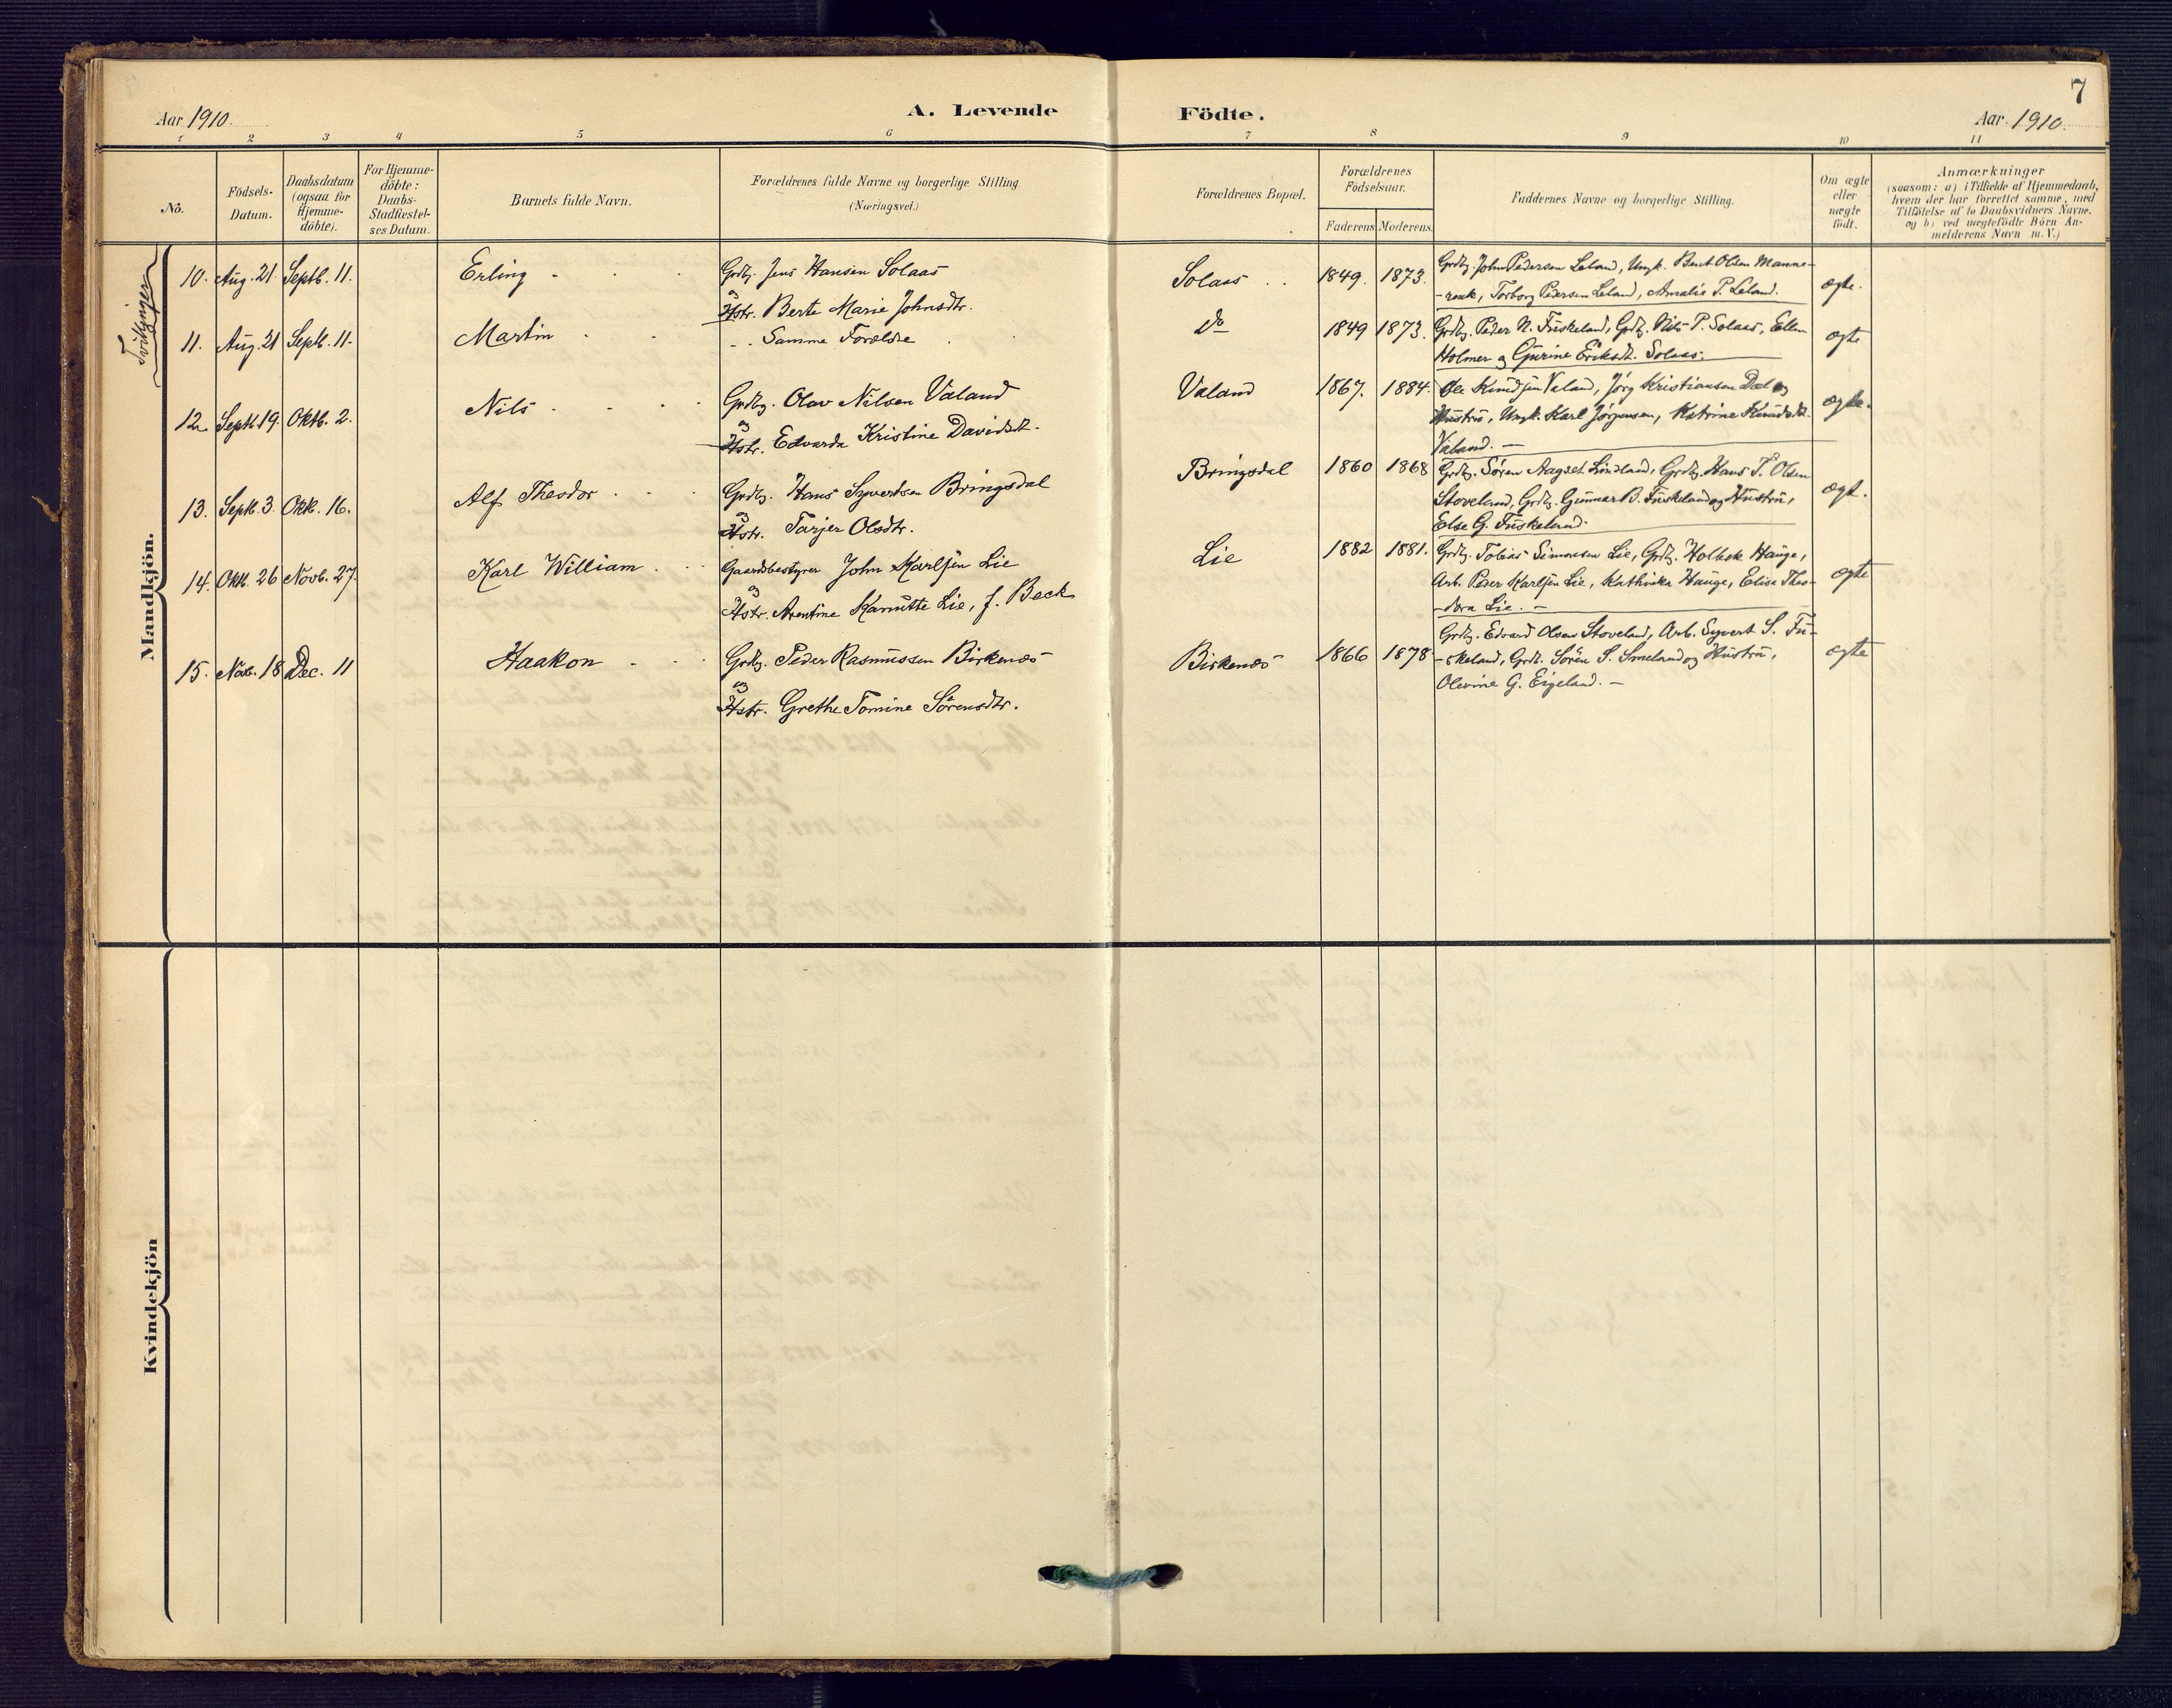 7
Aar 1910.
A. Levende Födte.
Aar 1910.
1 2 3 4 5 6 7 8 9 10 11
No.
Födsels-
Datum.
Daabsdatum
(ogsaa for
Hjemme-
döbte).
For Hjemme-
döbte:
Daabs-
Stadfæstel-
ses Datum.
Barnets fulde Navn.
Forældrenes fulde Navne og borgerlige Stilling
(Næringsvei.)
Forældrenes Bopæl.
Forældrenes
Födselsaar.
Faderens Moderens.
Faddernes Navne og borgerlige Stilling.
Om ægte
eller
uægte
födt.
Anmærkninger
(saasom: a) i Tilfælde af Hjemmedaab,
hvem der har forrettet samme, med
Tilföielse af to Daabsvidners Navne,
og b) ved uægtefödte Börn An-
melderens Navn m. V.)
Mandkjön.
Tvillinger
10. Aug. 21. Septb. 11. Erling
Grdbr. Jens Hansen Solaas
og
Hstr. Berte Marie Johnsdtr.
Solaas 1849. 1873.
Grdbr. John Pedersen Leland, Ungk. Bent Olsen Manne-
-raak, Torborg Pedersen Leland, Amalie P. Leland.
ægte.
11. Aug. 21 Septb. 11. Martin
Samme Forældre
do 1849 1873.
Grdbr. Peder N. Fuskeland, Grdbr. Nils P. Solaas, Ellen
Holmer og Gurine Eriksdt. Solaas.
ægte
12. Septb. 19. Oktb. 2. Nils
Grdbr. Olav Nilsen Valand
og
Hstr. Edvarda Kristine Davidsdt.
Valand 1867. 1884.
Ole Knudsen Valand, Jörg Kristiansen Dal og
Hustru, Ungk. Karl Jørgensen, Katrine Knudsdt.
Valand.
ægte.
13. Septb. 3. Oktb. 16. Alf Theodor
Grdbr. Hans Syvertsen Bringsdal
og
Hstr. Tarjer Olsdtr.
Bringsdal 1860 1868
Grdbr. Sören Aagset Lindland, Grdbr. Hans T. Olsen
Stoveland, Grdbr. Gunnar B. Fuskeland og Hustru,
Else G. Fuskeland.
ægt.
14. Oktb. 26 Novb. 27. Karl William
Gaardsbestyrer John Karlsen Lie
og
Hstr. Arentine Karnitte Lie, f. Beck
Lie 1882 1881.
Grdbr. Tobias Simonsen Lie, Grdbr. Holbek Hauge,
Arb. Peder Karlsen Lie, Kathinka Hauge, Elise Theo-
-dora Lie.
ægte
15. Novb. 18 Dec. 11 Haakon
Grdbr. Peder Rasmussen Birkenes
og
Hstr. Grethe Tomine Sörensdtr.
Birkenes 1866 1878
Grdbr. Edvard Olsen Stoveland, Arb. Syvert S. Fu-
-skeland, Grdbr. Sören S. Smeland og Hustru,
Olevine G. Eigeland.
ægte
Kvindekjön